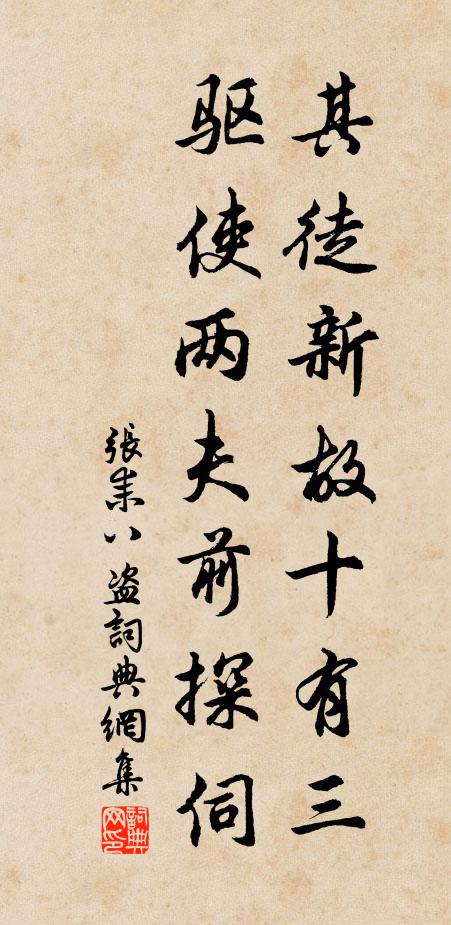 其徒新故十有三
驱使两夫前探伺
張朱八盗詞典網集
詞典网印